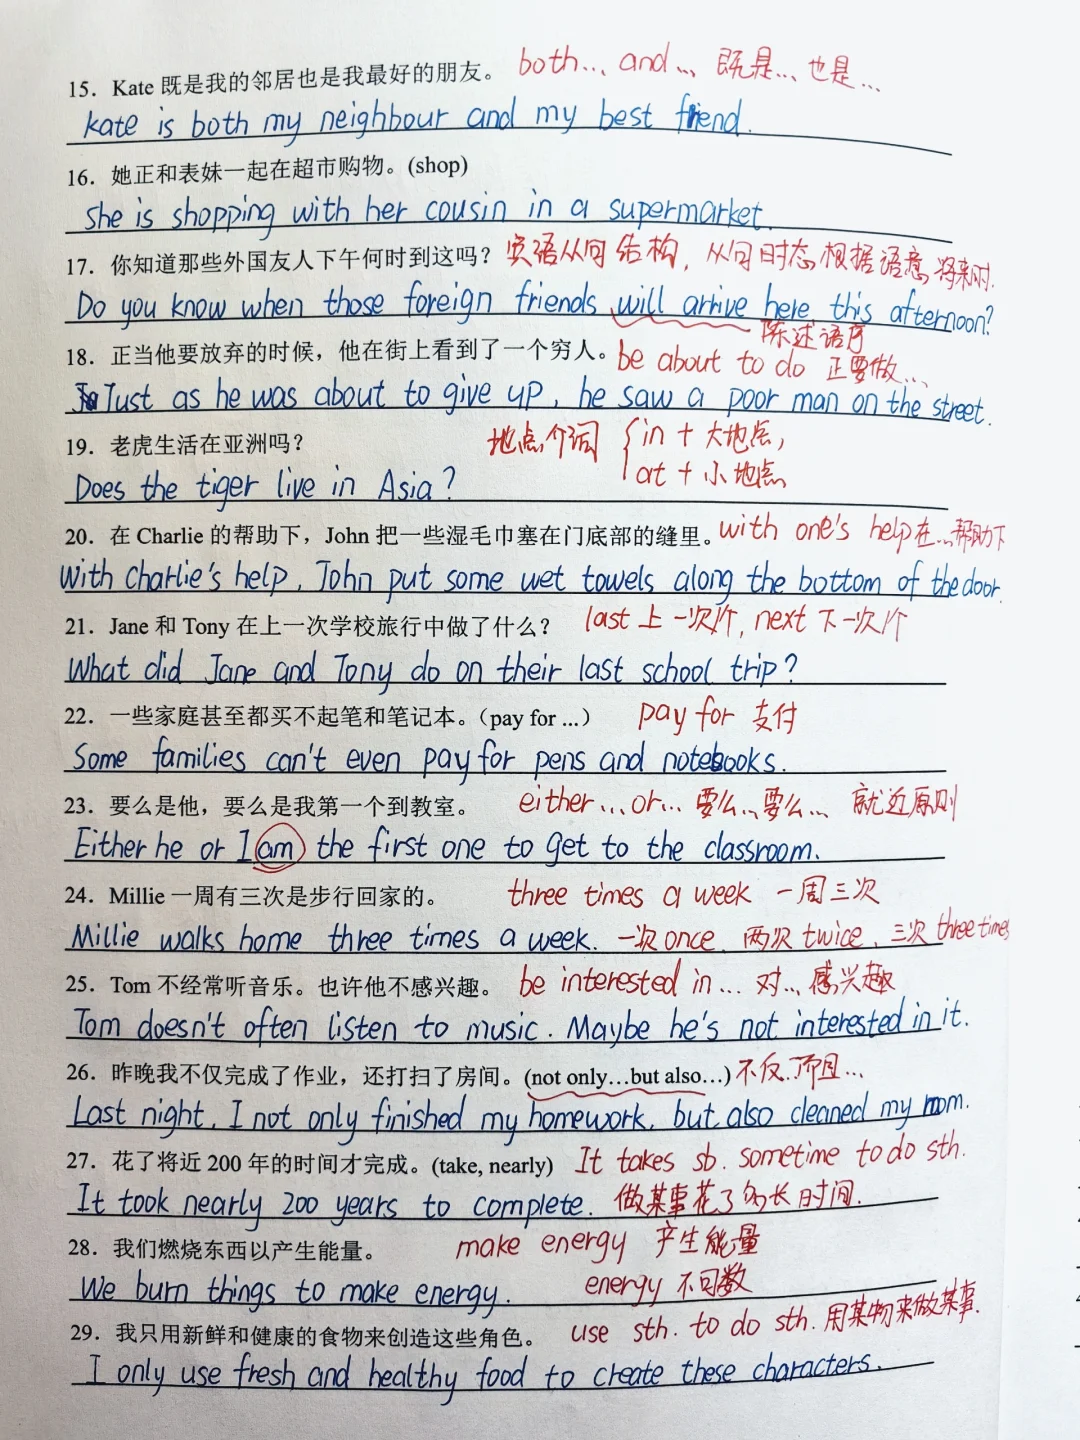 15. Kate 既是我的邻居也是我最好的朋友。 both... and... 既是... 也是...
kate is both my neighbour and my best friend.
16. 她正和表妹一起在超市购物。(shop)
She is shopping with her cousin in a supermarket.
17. 你知道那些外国友人下午何时到这吗? 宾语从句 结构, 从句时态根据语意 将来时.
Do you know when those foreign friends will arrive here this afternoon?
陈述语序
18. 正当他要放弃的时候，他在街上看到了一个穷人。 be about to do 正要做...
Just as he was about to give up, he saw a poor man on the street.
19. 老虎生活在亚洲吗? 地点介词 { in + 大地点,
at + 小地点
Does the tiger live in Asia?
20. 在 Charlie 的帮助下，John 把一些湿毛巾塞在门底部的缝里。 with one's help 在...帮助下
With Charlie's help, John put some wet towels along the bottom of the door.
21. Jane 和 Tony 在上一次学校旅行中做了什么? last 上一次/个, next 下一次/个
What did Jane and Tony do on their last school trip?
22. 一些家庭甚至都买不起笔和笔记本。(pay for ...) pay for 支付
Some families can't even pay for pens and notebooks.
23. 要么是他，要么是我第一个到教室。 either...or... 要么...要么... 就近原则
Either he or I am the first one to get to the classroom.
24. Millie 一周有三次是步行回家的。 three times a week 一周三次
Millie walks home three times a week. 一次 once, 两次 twice, 三次 three times
25. Tom 不经常听音乐。也许他不感兴趣。 be interested in... 对...感兴趣
Tom doesn't often listen to music. Maybe he's not interested in it.
26. 昨晚我不仅完成了作业，还打扫了房间。(not only…but also…) 不仅...而且...
Last night, I not only finished my homework, but also cleaned my room.
27. 花了将近 200 年的时间才完成。(take, nearly) It takes sb. sometime to do sth.
It took nearly 200 years to complete. 做某事花了多长时间.
28. 我们燃烧东西以产生能量。 make energy 产生能量
We burn things to make energy. energy 不可数
29. 我只用新鲜和健康的食物来创造这些角色。 use sth. to do sth. 用某物来做某事.
I only use fresh and healthy food to create these characters.